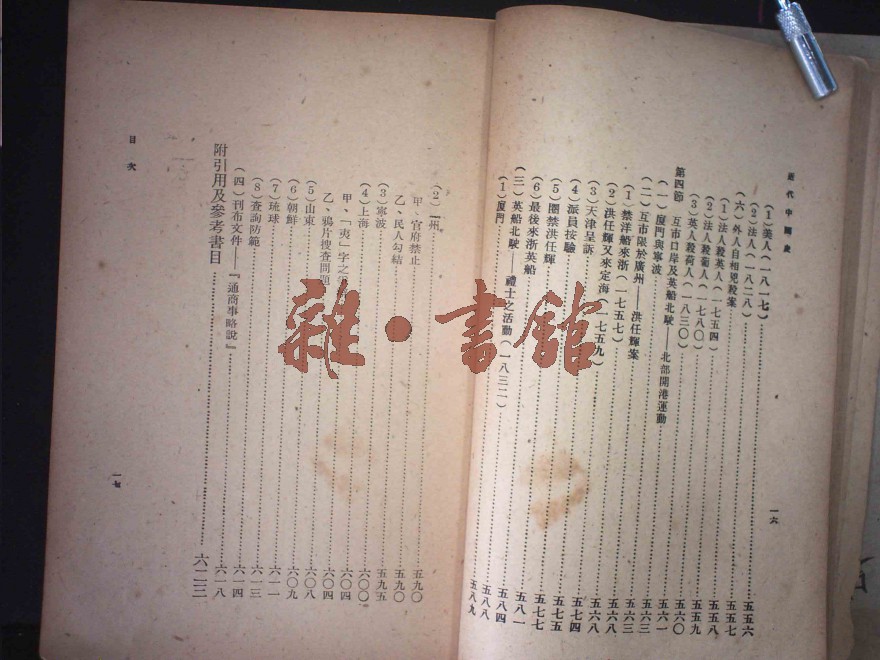 近代中國史
(1)美人(一八一七)……五五六
(2)法人(一八二八)……五五七
(六)外人自相兇殺案……五五八
(1)法人殺英人(一七五四)……五五九
(2)法人殺葡人(一七八〇)……五六〇
(3)英人殺荷人(一八三〇)……五六一
第四節 互市口岸及英船北駛——北部開港運動……五六三
(一)厦門與寧波……五六三
(二)互市限於廣州——洪任輝案……五六八
(1)禁洋船來浙(一七五七)……五六八
(2)洪任輝又來定海(一七五九)……五七四
(3)天津呈訴……五七五
(4)派員按驗……五七七
(5)圈禁洪任輝……五八一
(6)最後來浙英船……五八四
(三)英船北駛——禮士之活動(一八三二)……五八八
(1)厦門……五八九
一六
(2)州……五九〇
甲、官府禁止……五九〇
乙、民人勾結……五九五
(3)寧波……六〇〇
(4)上海……六〇四
甲、「夷」字之……六〇四
乙、鴉片搜查問題……六〇八
(5)山東……六〇九
(6)朝鮮……六一一
(7)琉球……六一三
(8)查詢防範……六一四
(四)刊布文件——『通商事略說』……六一八
附引用及參考書目……六二三
目次
一七
雜·書館